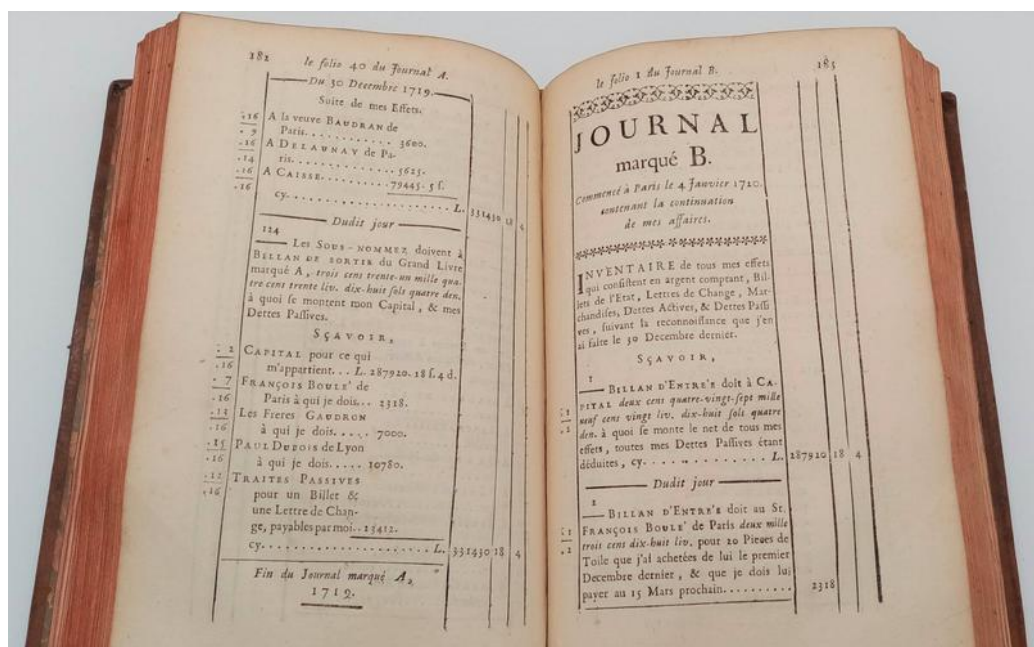 182
le folio 40 du Journal A.
Du 30 Decembre 1719.
Suite de mes Effets.
.16 A la veuve BAUDRAN de
. 9 Paris. . . . . . . . . . . . 3600.
.16 A DELAUNAY de Pa-
.14 ris. . . . . . . . . . . . . . 5625.
.16 A CAISSE. . . . . . . . . 79445. 5 s.
.16 cy. . . . . . . . . . . . . . . . . . . . L. 331430 18 4
Dudit jour
124
Les SOUS-NOMMEZ doivent à
BILLAN DE SORTIE du Grand Livre
marqué A, trois cens trente-un mille qua-
tre cens trente liv. dix-huit sols quatre den.
à quoi se montent mon Capital, & mes
Dettes Passives.
SÇAVOIR,
. 2 CAPITAL pour ce qui
.16 m'appartient. . . L. 287920. 18 s. 4 d.
. 7 FRANÇOIS BOULE' de
.16 Paris à qui je dois. . . 2318.
.12 Les Freres GAUDRON
.16 à qui je dois. . . . . 7000.
.15 PAUL DUBOIS de Lyon
.16 à qui je dois. . . . . 10780.
.12 TRAITES PASSIVES
.16 pour un Billet &
une Lettre de Chan-
ge, payables par moi. . 23412.
cy. . . . . . . . . . . . . . . . . . . . L. 331430 18 4
Fin du Journal marqué A,
1719.
le folio 1 du Journal B.
183
JOURNAL
marqué B.
Commencé à Paris le 4 Janvier 1720.
contenant la continuation
de mes affaires.
INVENTAIRE de tous mes effets
qui consistent en argent comptant, Bil-
lets de l'Etat, Lettres de Change, Mar-
chandises, Dettes Actives, & Dettes Passi
ves, suivant la reconnoissance que j'en
ai faite le 30 Decembre dernier.
SÇAVOIR,
1
BILLAN D'ENTRE'E doit à CA-
PITAL deux cens quatre-vingt-sept mille
neuf cens vingt liv. dix-huit sols quatre
den. à quoi se monte le net de tous mes
effets, toutes mes Dettes Passives étant
déduites, cy. . . . . . . . . . . . L. 287920 18 4
Dudit jour
2
BILLAN D'ENTRE'E doit au Sr.
FRANÇOIS BOULE' de Paris deux mille
trois cens dix-huit liv. pour 20 Pieces de
Toile que j'ai achetées de lui le premier
Decembre dernier, & que je dois lui
payer au 15 Mars prochain. . . . . . . . . . 2318